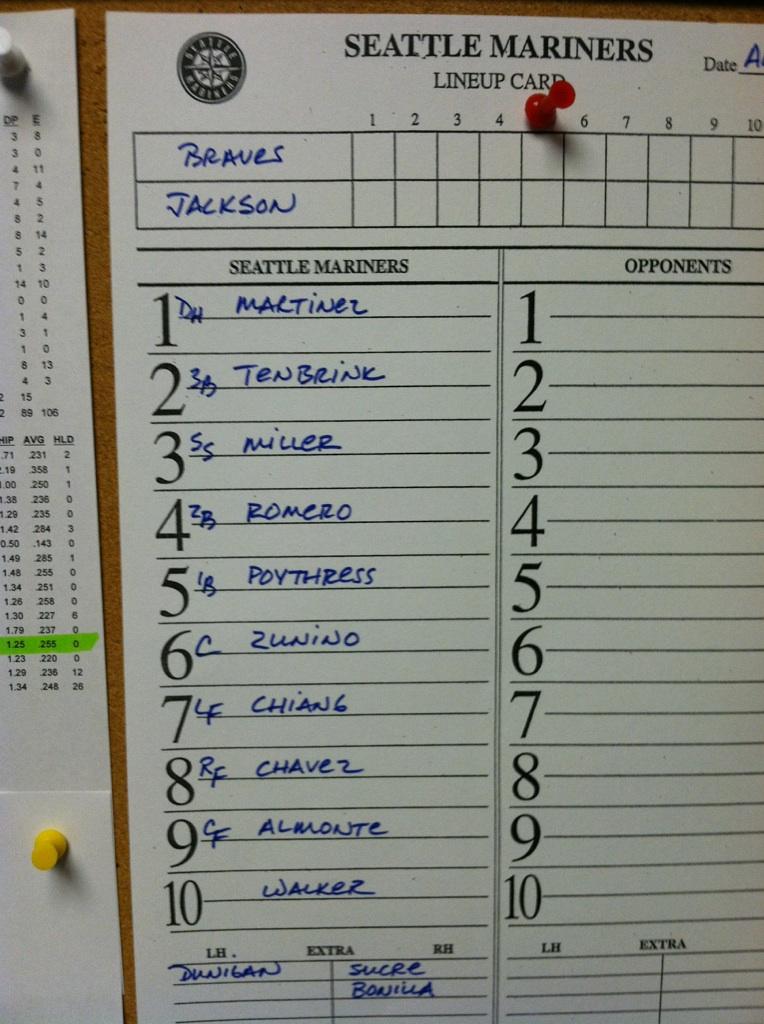 DP E
3 8
3 0
4 11
7 4
4 5
8 2
8 14
5 2
1 3
14 10
0 0
1 4
3 1
1 0
8 13
4 3
2 15
2 89 106
HIP AVG HLD
.71 .231 2
2.19 .358 1
1.00 .250 1
1.38 .236 0
1.29 .235 0
1.42 .284 3
0.50 .143 0
1.49 .285 1
1.48 .255 0
1.34 .251 0
1.26 .258 0
1.30 .227 6
1.79 .237 0
1.25 .255 0
1.23 .220 0
1.29 .236 12
1.34 .248 26
SEATTLE MARINERS
SEATTLE MARINERS
LINEUP CARD
Date A
1 2 3 4 6 7 8 9 10
BRAVES
JACKSON
SEATTLE MARINERS OPPONENTS
1 DH MARTINEZ 1
2 3B TENBRINK 2
3 SS MILLER 3
4 2B ROMERO 4
5 1B POYTHRESS 5
6 C ZUNINO 6
7 LF CHIANG 7
8 RF CHAVEZ 8
9 CF ALMONTE 9
10 WALKER 10
LH. EXTRA RH LH EXTRA
DUNIGAN SUCRE
BONILLA